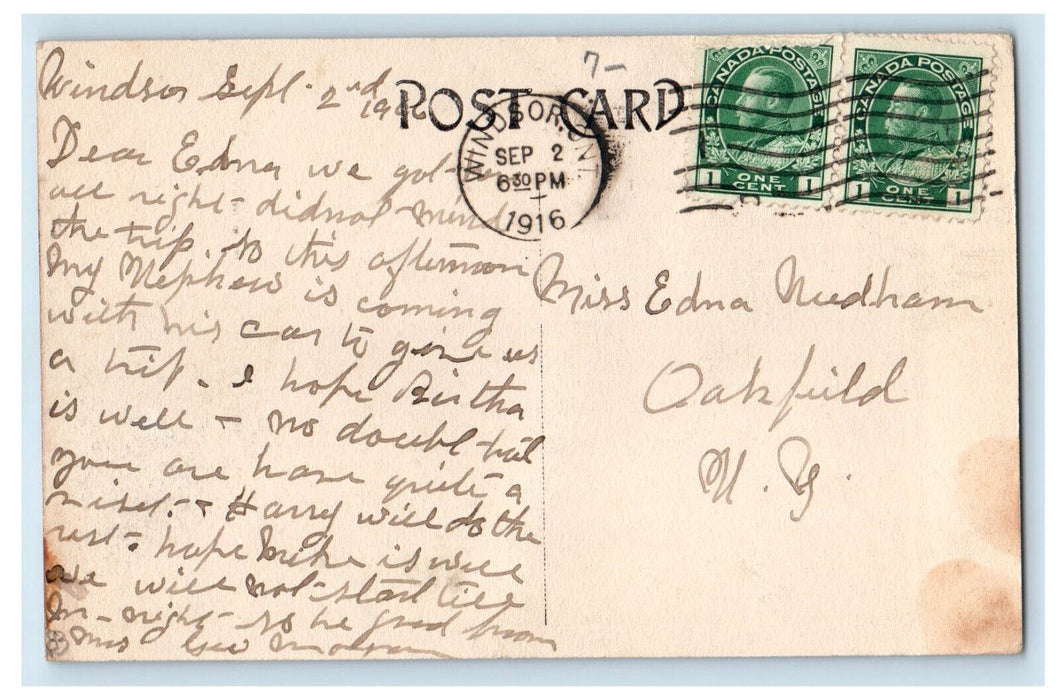 Windsor Sept. 2nd
POST CARD
7-
WINDSOR, ONT.
SEP 2
6 30 PM
1916
CANADA POSTAGE
1 ONE CENT 1
CANADA POSTAGE
1 ONE CENT 1
Dear Edna we got
all right - didnot mind
the trip so this afternoon
My Nephew is coming
with his car to give us
a trip - I hope Birtha
is well - no doubt but
you are have quite a
- Harry will do the
rest - hope Mike is well
we will not start till
night - so be good
Mrs Geo
Miss Edna Needham
Oakfield
N. Y.